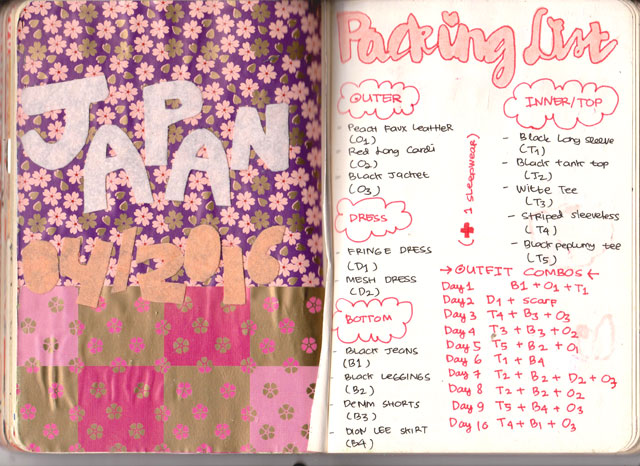 JAPAN
04/2016
Packing List
OUTER
- Peach Faux Leather
(O1)
- Red Long Cardi
(O2)
- Black Jacket
(O3)
DRESS
- FRINGE DRESS
(D1)
- MESH DRESS
(D2)
BOTTOM
- BLack JEANS
(B1)
- BLack LEGGINGS
(B2)
- DENIM SHORTS
(B3)
- DION LEE SKIRT
(B4)
(+ 1 sleepwear)
INNER/TOP
- Black Long sleeve
(T1)
- Black tank top
(T2)
- Witte Tee
(T3)
- Striped sleeveless
(T4)
- Black peplum tee
(T5)
→ OUTFIT COMBOS ←
Day 1 B1 + O1 + T1
Day 2 D1 + scarf
Day 3 T4 + B3 + O3
Day 4 T3 + B3 + O2
Day 5 T5 + B2 + O1
Day 6 T1 + B4
Day 7 T2 + B2 + D2 + O3
Day 8 T2 + B2 + O2
Day 9 T5 + B4 + O3
Day 10 T4 + B1 + O3